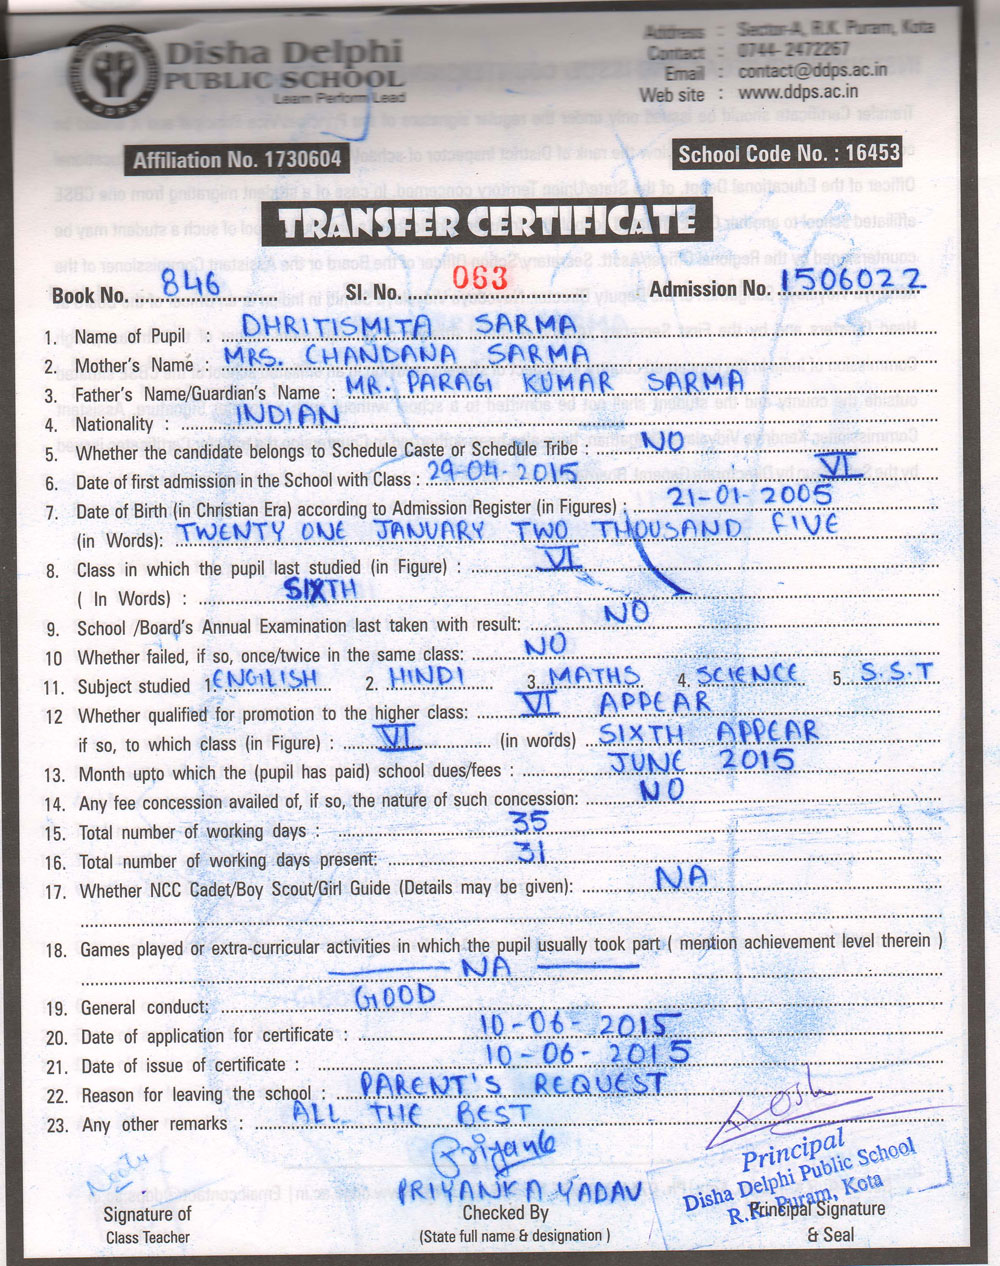 Disha Delphi
PUBLIC SCHOOL
Learn Perform Lead
DDPS
Address : Sector-A, R.K. Puram, Kota
Contact : 0744- 2472267
Email : contact@ddps.ac.in
Web site : www.ddps.ac.in
Affiliation No. 1730604
School Code No. : 16453
TRANSFER CERTIFICATE
Book No. 846 Sl No. 063 Admission No. 1506022
1. Name of Pupil DHRITISMITA SARMA
2. Mother's Name MRS. CHANDANA SARMA
3. Father's Name/Guardian's Name MR. PARAG KUMAR SARMA
4. Nationality : INDIAN
5. Whether the candidate belongs to Schedule Caste or Schedule Tribe : NO
6. Date of first admission in the School with Class : 29-04-2015 VI
7. Date of Birth (in Christian Era) according to Admission Register (in Figures) : 21-01-2005
(in Words): TWENTY ONE JANUARY TWO THOUSAND FIVE
8. Class in which the pupil last studied (in Figure) : VI
( In Words) : SIXTH
9. School /Board's Annual Examination last taken with result: NO
10 Whether failed, if so, once/twice in the same class: NO
11. Subject studied 1. ENGLISH 2. HINDI 3. MATHS 4. SCIENCE 5. S.S.T
12 Whether qualified for promotion to the higher class: VI APPEAR
if so, to which class (in Figure) : VI (in words) SIXTH APPEAR
13. Month upto which the (pupil has paid) school dues/fees : JUNE 2015
14. Any fee concession availed of, if so, the nature of such concession: NO
15. Total number of working days : 35
16. Total number of working days present: 31
17. Whether NCC Cadet/Boy Scout/Girl Guide (Details may be given): NA
18. Games played or extra-curricular activities in which the pupil usually took part ( mention achievement level therein )
NA
19. General conduct: GOOD
20. Date of application for certificate : 10-06-2015
21. Date of issue of certificate : 10-06-2015
22. Reason for leaving the school : PARENT'S REQUEST
23. Any other remarks : ALL THE BEST
Priyanka
PRIYANKA YADAV
Principal
Disha Delphi Public School
R.K. Puram, Kota
Signature of
Class Teacher
Checked By
(State full name & designation )
Principal Signature
& Seal